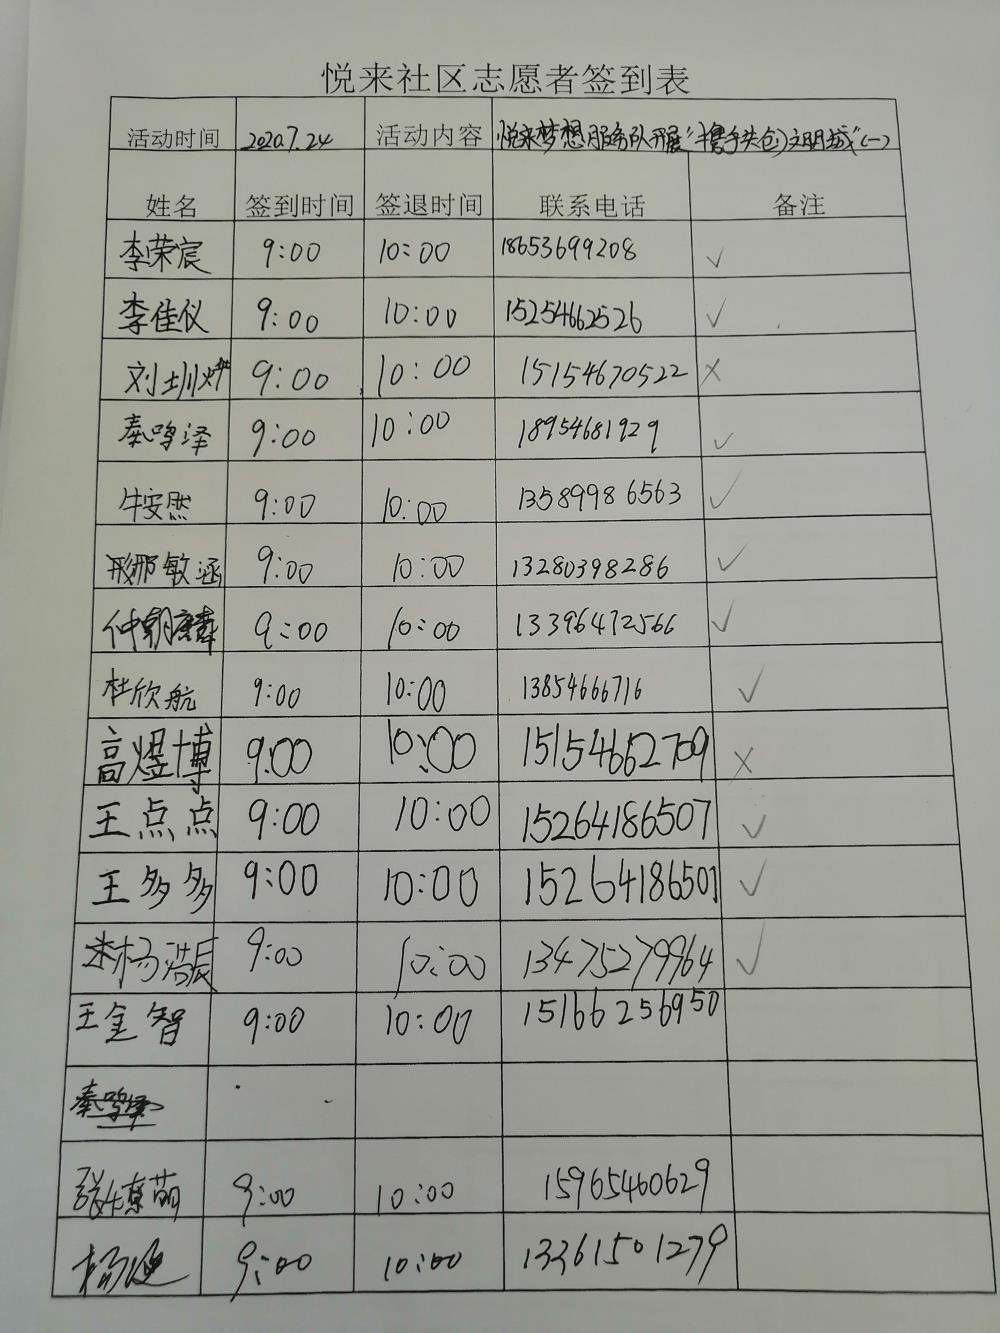 悦来社区志愿者签到表
活动时间 2020.7.24 活动内容 悦来梦想服务队开展"携手共创文明城"(一)
姓名 签到时间 签退时间 联系电话 备注
李荣宸 9:00 10:00 18653699208 ✓
李佳仪 9:00 10:00 15254662526 ✓
刘圳烨 9:00 10:00 15154670522 ×
秦鸣泽 9:00 10:00 18954681929 ✓
牛安然 9:00 10:00 13589986563 ✓
邢敏涵 9:00 10:00 13280398286 ✓
仲朝麟 9:00 10:00 13396472566 ✓
杜欣航 9:00 10:00 13854666716 ✓
高煜博 9:00 10:00 15154662709 ×
王点点 9:00 10:00 15264186507 ✓
王多多 9:00 10:00 15264186507 ✓
杨浩辰 9:00 10:00 13475279964 ✓
王金智 9:00 10:00 15166256950
秦鸣泽
张 萌 9:00 10:00 15965460629
杨 9:00 10:00 13361501279